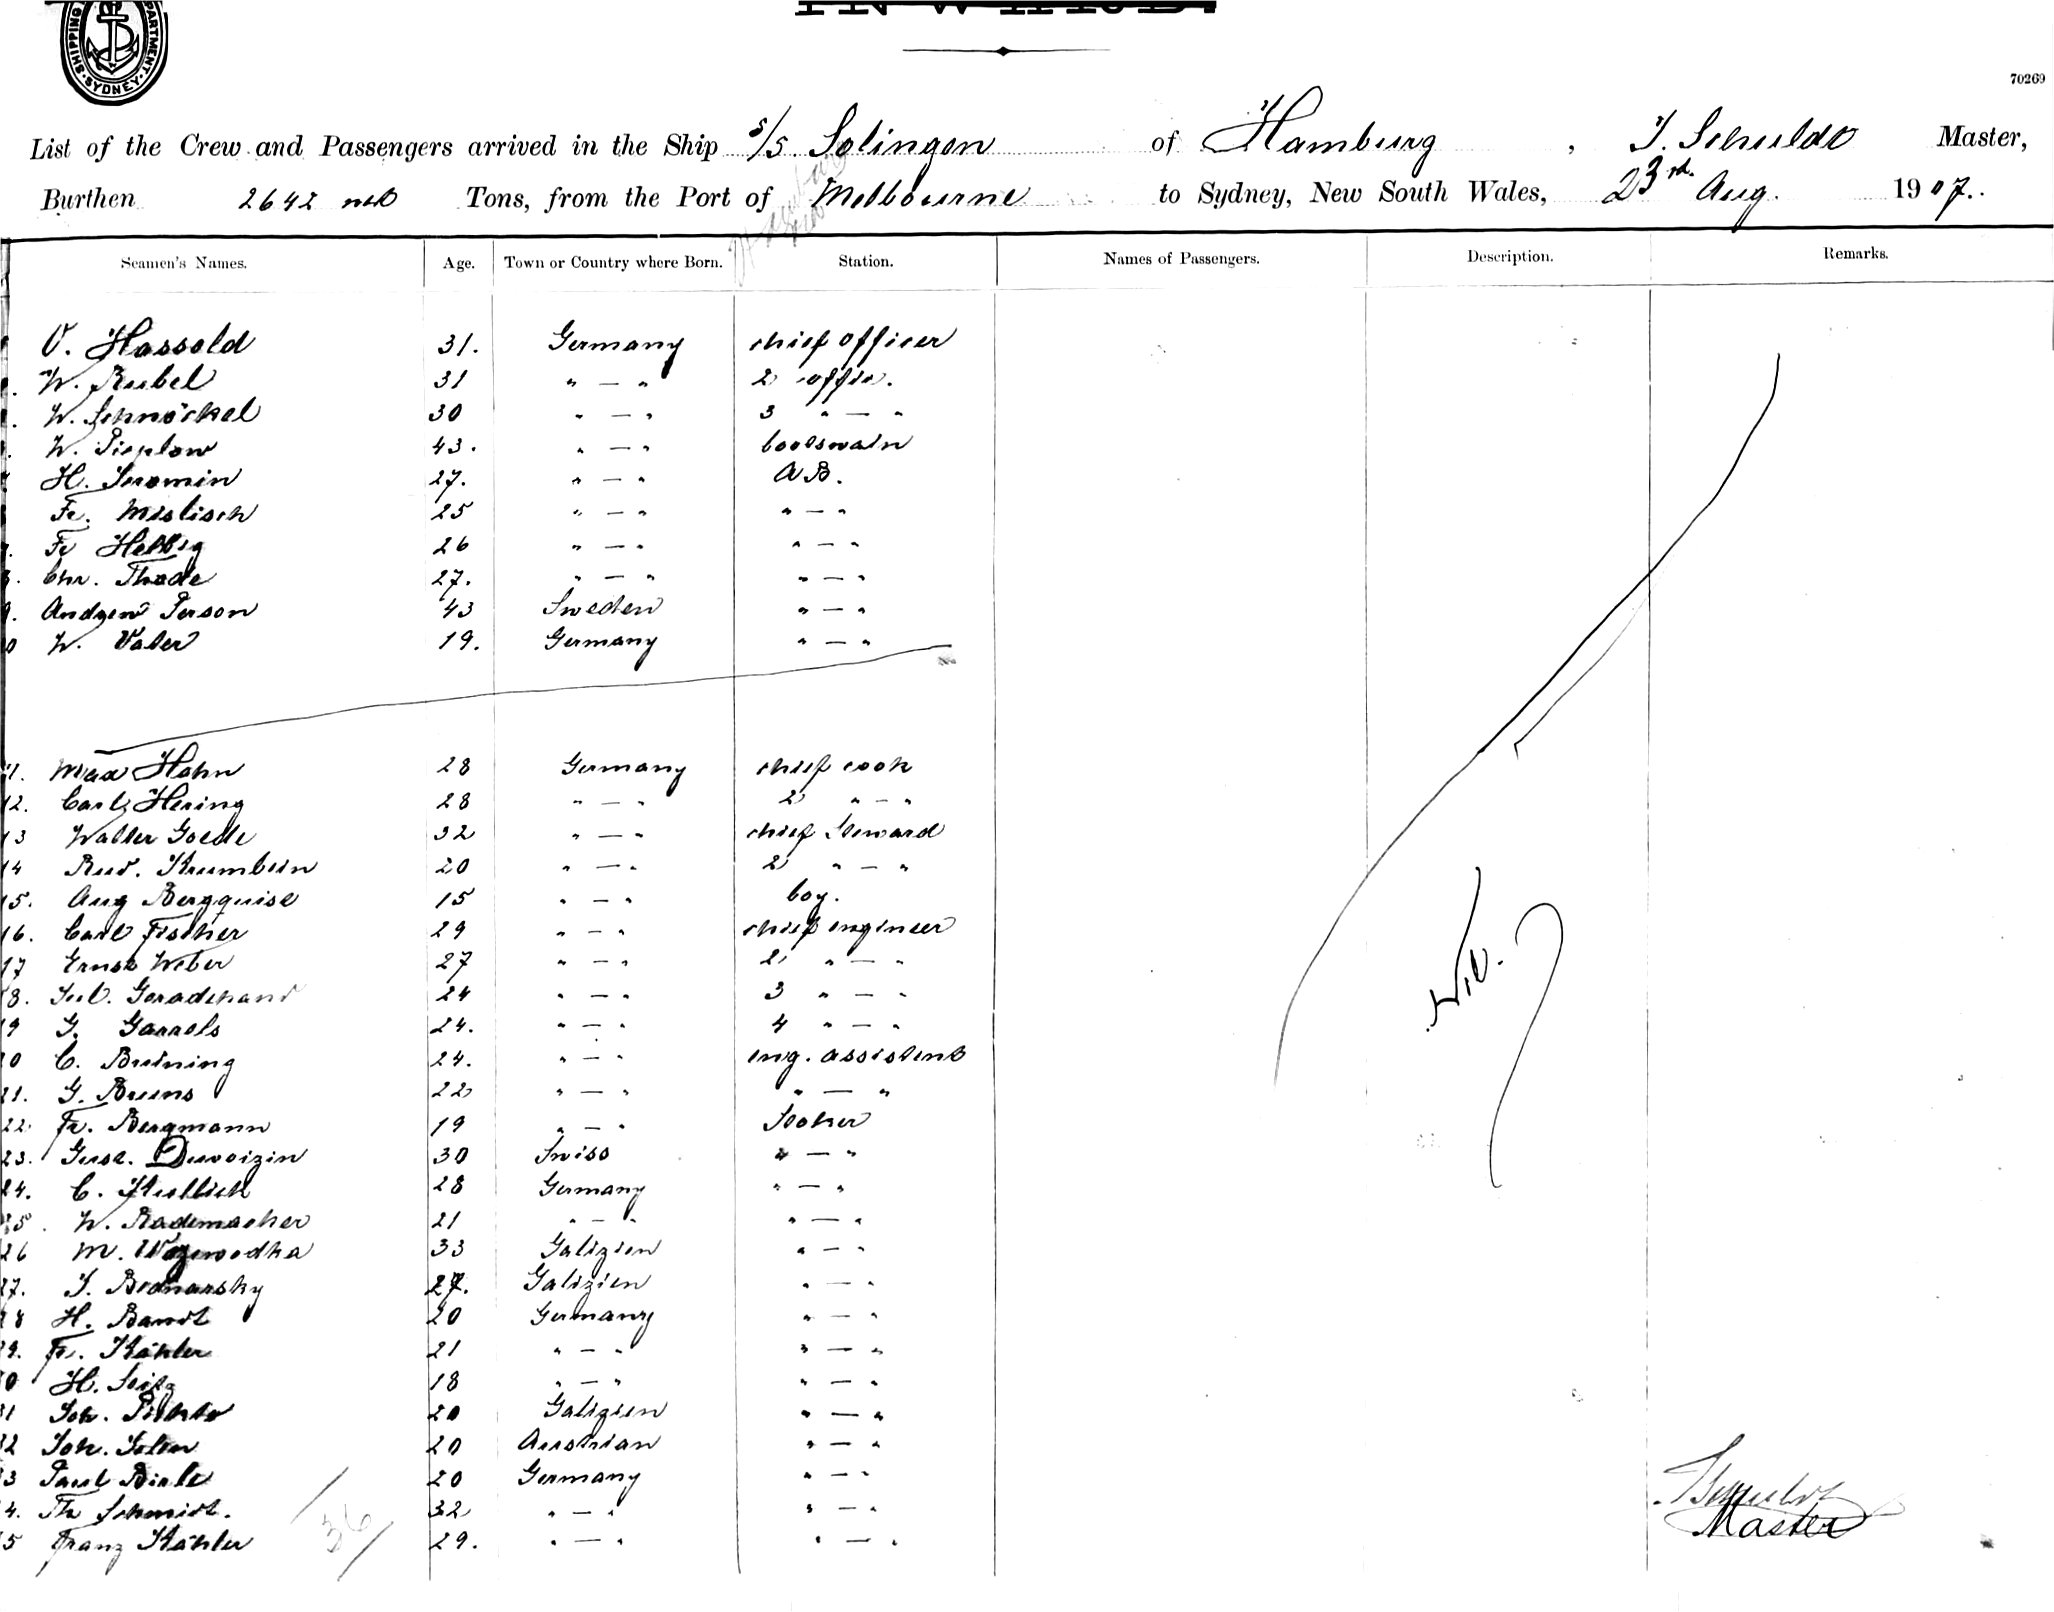 SHIPPING DEPARTMENT. SYDNEY.
INWARD.
70269
List of the Crew and Passengers arrived in the Ship s/s. Solingen of Hamburg, J. Schuldt Master,
Burthen 2642 net Tons, from the Port of Melbourne to Sydney, New South Wales, 23rd. Aug. 1907.
Seamen's Names. Age. Town or Country where Born. Station. Names of Passengers. Description. Remarks.
O. Hassold 31. Germany chief officer
W. Rubel 31 " — " 2 offic.
W. Schnöckel 30 " — " 3 " — "
W. Pieplow 43. " — " boatswain
H. Jeromin 27. " — " A.B.
Fr. Mislisch 25 " — " " — "
Fr Helbig 26 " — " " — "
Chr. Thode 27. " — " " — "
9. Andrew Person 43 Sweden " — "
W. Vater 19. Germany " — "
11. Max Hahn 28 Germany chief cook
12. Carl Hering 28 " — " 2 " — "
13 Walter Goede 32 " — " chief Steward
14 Rud. Krumbein 20 " — " 2 " — "
15. Aug Bergquist 15 " — " boy.
16. Carl Fischer 29 " — " chief engineer
17 Ernst Weber 27 " — " 2 " — "
18. Jul. Geradehand 24 " — " 3 " — "
19 G. Garrels 24. " — " 4 " — "
20 C. Bruning 24. " — " eng. assistent
21. G. Bruns 22 " — " " — "
22 Fr. Bergmann 19 " — " Stoker
23. Gust. Duvoizin 30 Swiss " — "
24. C. 28 Germany " — "
25. W. Rademacher 21 " — " " — "
26 M. Woyewodka 33 Galizien " — "
27. J. Bednarsky 27. Galizien " — "
28 H. Bandt 20 Germany " — "
29. Fr. Kähler 21 " — " " — "
30 H. Seitz 18 " — " " — "
31 Joh. 20 Galizien " — "
32 Joh. 20 Austrian " — "
33 Paul 20 Germany " — "
34. Th Schmidt. 32 " — " " — "
35 Franz Kähler 29. " — " " — "
36
Nil.
J Schuldt
Master